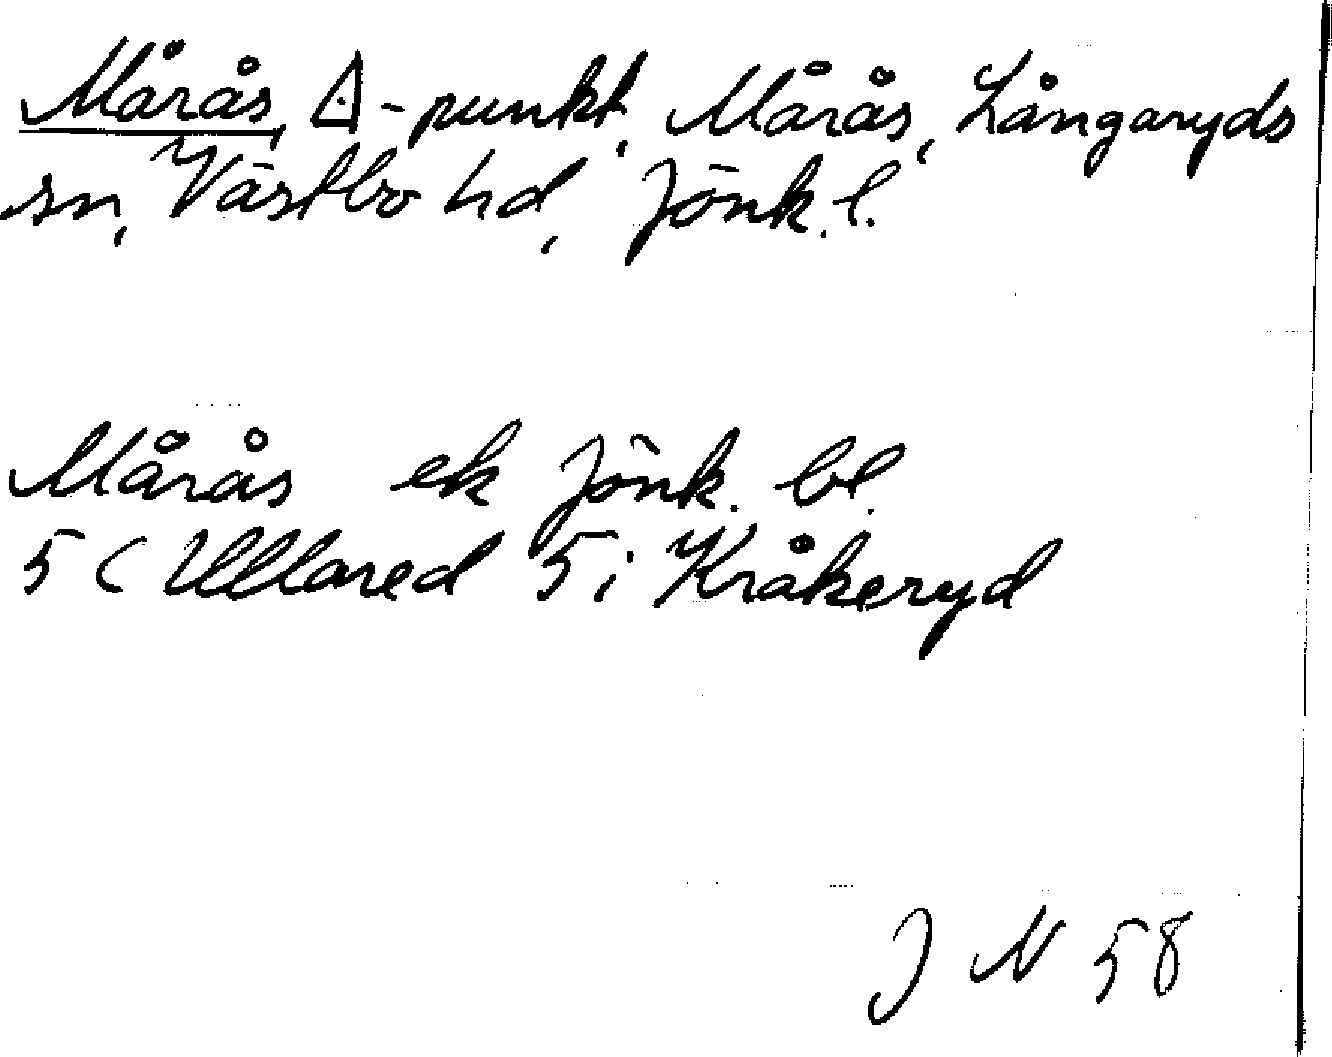 Mårås, △-punkt, Mårås, Långaryds
sn, Västbo hd, Jönk. l.
Mårås ek Jönk. bl.
5 C Ullared 5 i Kråkeryd
J N 58